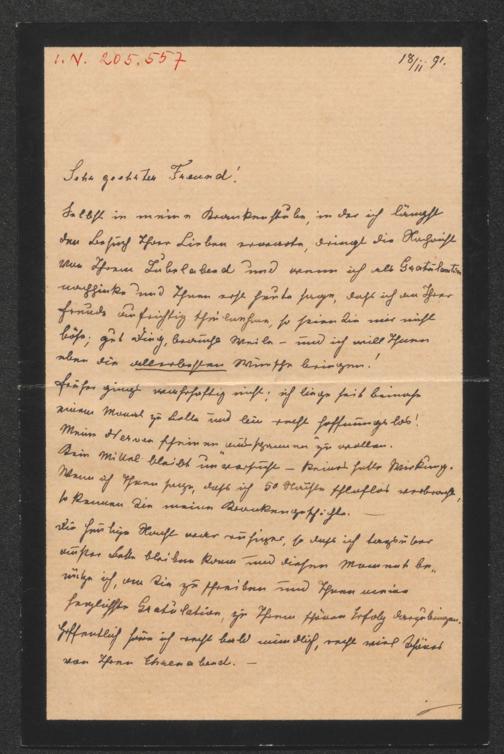 I. N. 205.557
18/II 91.
Sehr geehrter Freund!
Selbst in meine Krankenstube, in der ich längst
den Besuch Ihrer Lieben erwarte, dringt die Nachricht
von Ihrem Jubelabend und wenn ich als Gratulantin
nachhinke und Ihnen erst heute sage, daß ich an Ihrer
Freude aufrichtig theilnehme, so seien Sie mir nicht
böse; gut Ding braucht Weile – und ich will Ihnen
eben die allerbesten Wünsche bringen!
Früher gings wahrhaftig nicht; ich liege seit beinahe
einem Monat zu Bette und bin recht hoffnungslos!
Meine Nerven scheinen "ausspannen" zu wollen.
Kein Mittel bleibt unversucht – keines hatte Wirkung.
Wenn ich Ihnen sage, daß ich 50 Nächte schlaflos verbracht,
so kennen Sie meine Krankengeschichte. —
Die heutige Nacht war ruhiger, so daß ich tagsüber
außer Bette bleiben kann und diesen Moment be-
nütze ich, an Sie zu schreiben und Ihnen meine
herzlichste Gratulation, zu Ihrem schönen Erfolg darzubringen.
Hoffentlich höre ich recht bald mündlich, recht viel Schönes
von Ihrem Ehrenabend. —